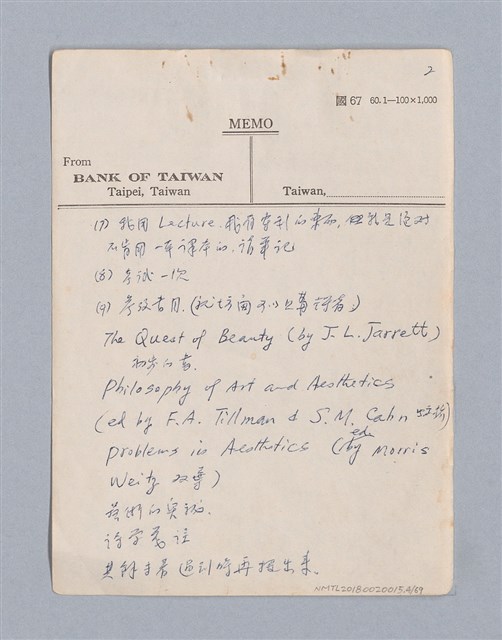 2
國 67 60.1—100×1,000
MEMO
From
BANK OF TAIWAN
Taipei, Taiwan
Taiwan,
(7) 我用 Lecture. 我有專刊的東西, 但就是絕對
不肯用一本課本的, 請筆記
(8) 考試一次
(9) 參考書目.
The Quest of Beauty (by J. L. Jarrett)
初步的書.
Philosophy of Art and Aesthetics
(ed by F. A. Tillman & S. M. Cahn
Problems in Aesthetics (eds by Morris
Weitz
藝術的奧秘.
詩學箋註
其餘書籍遇到時再提出來.
NMTL20180020015.4/69